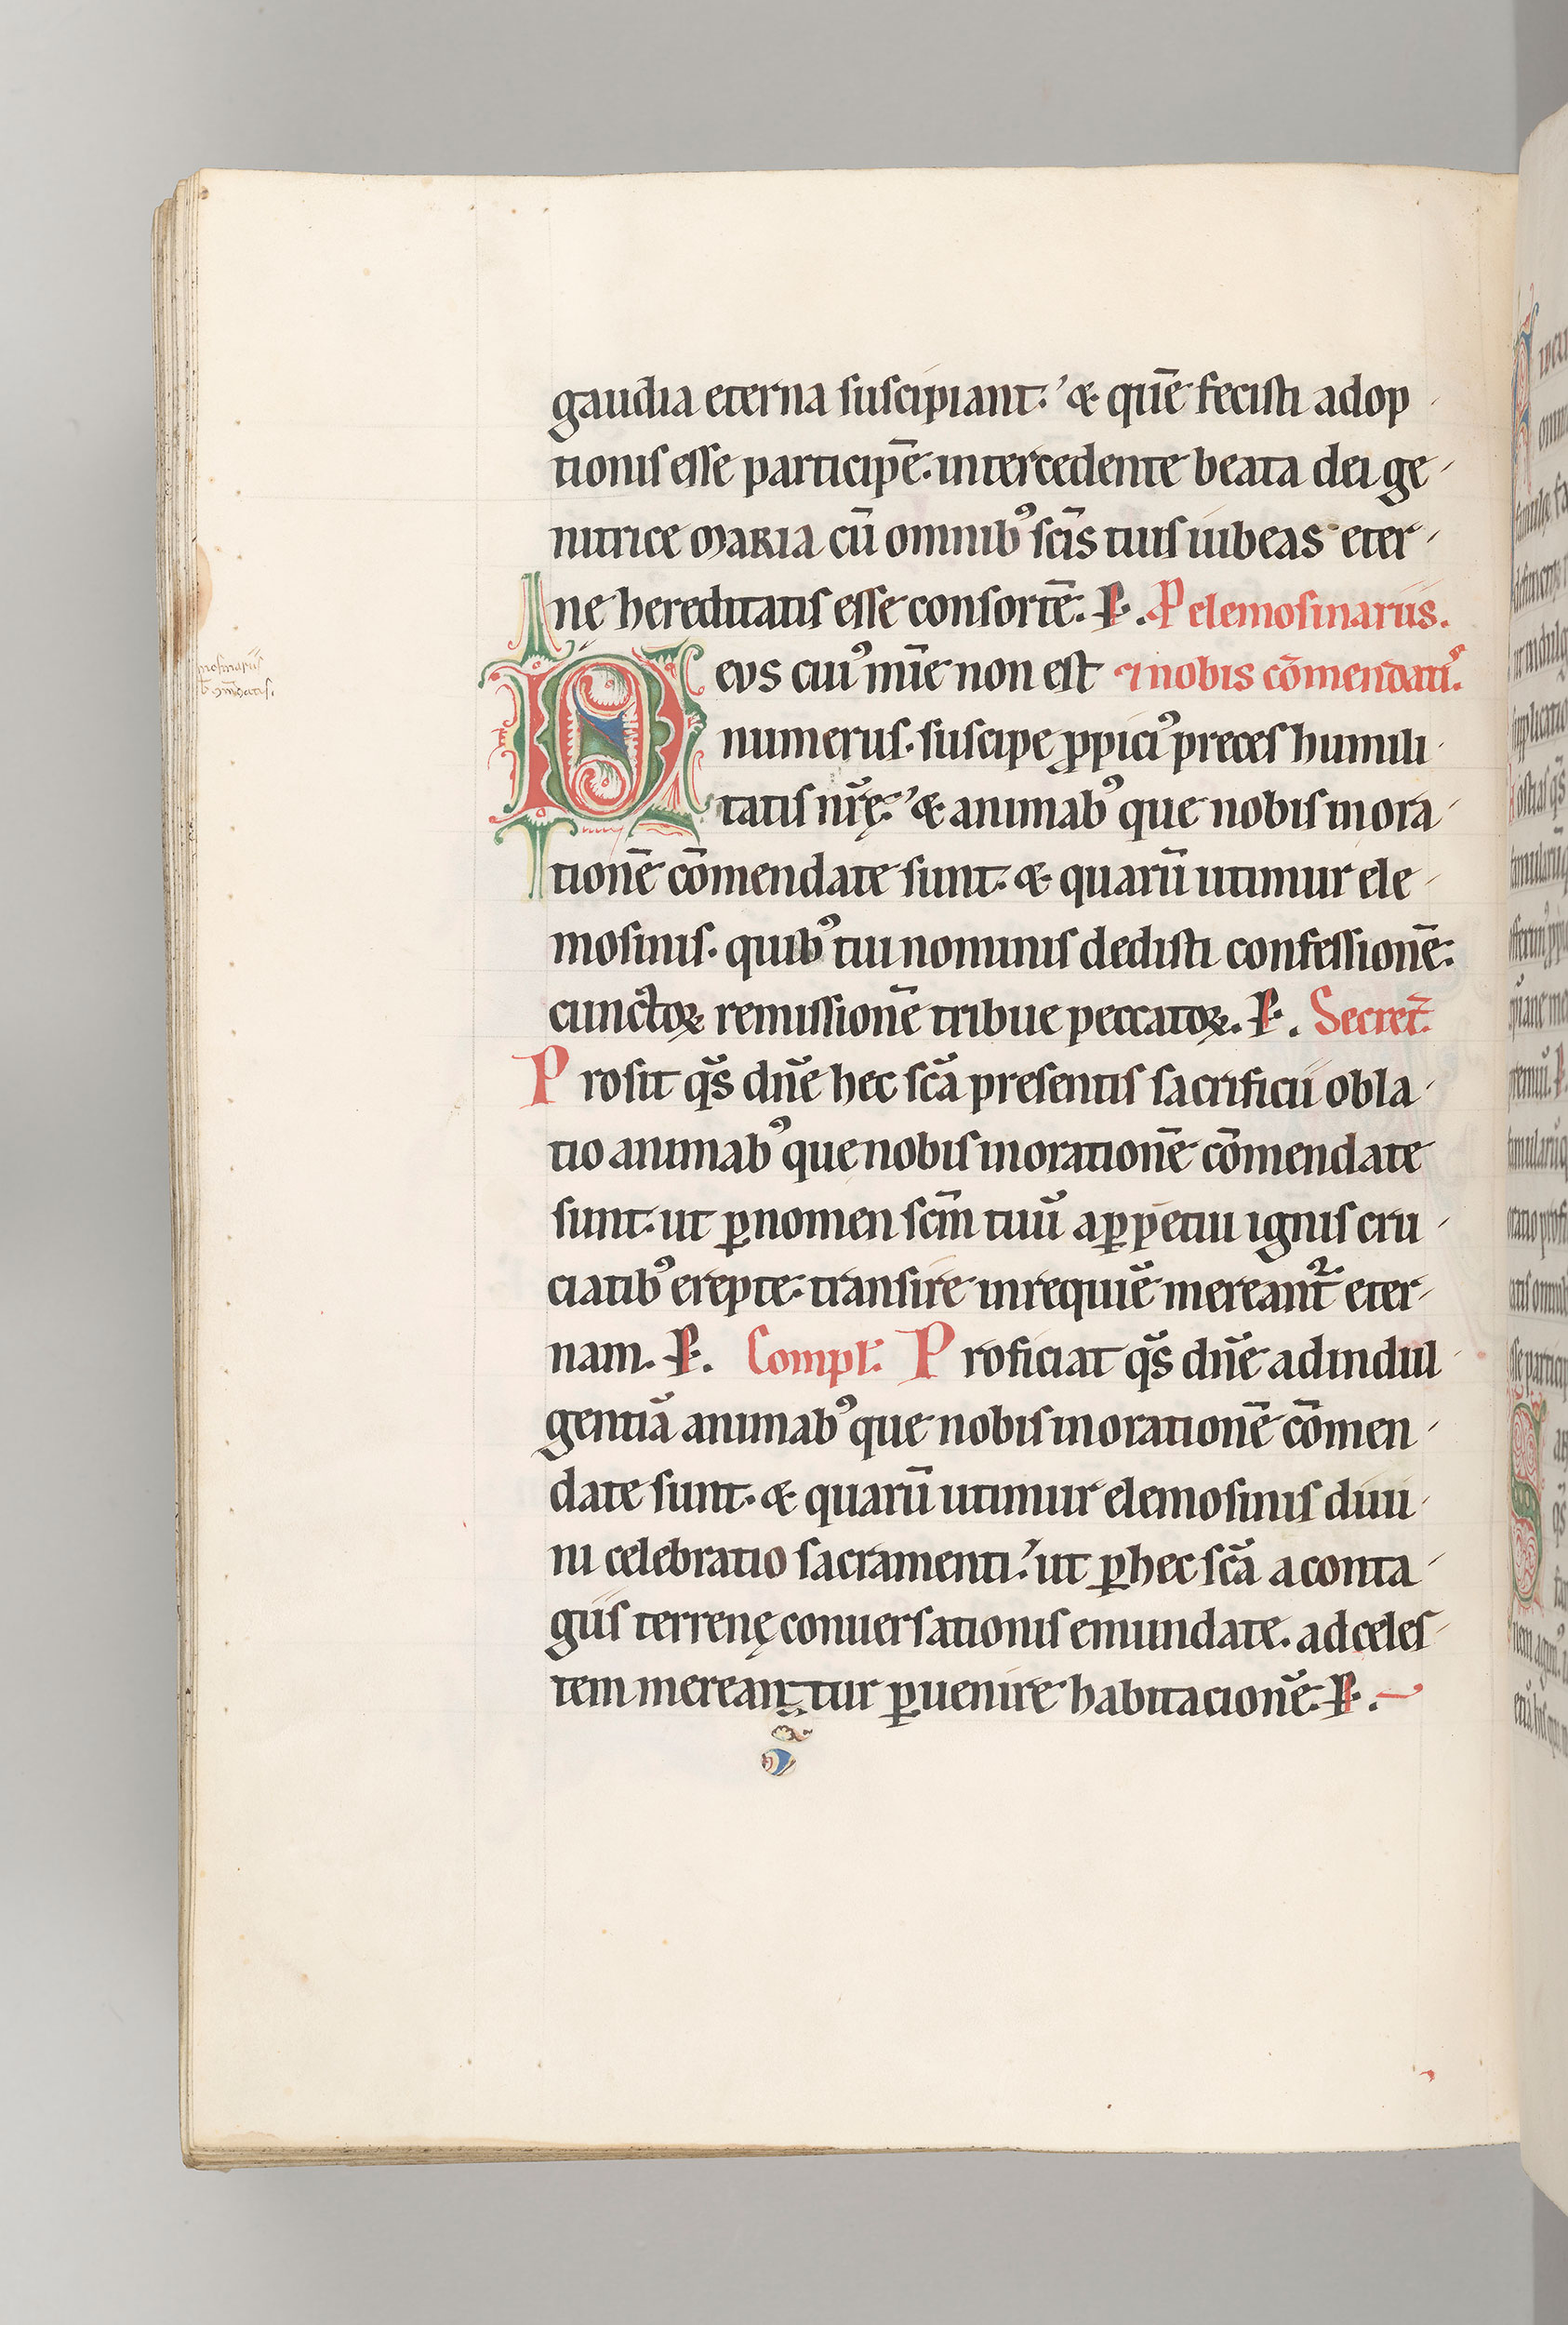 gaudia eterna suscipiant·' & quē fecisti adop-
tionis esse participē· intercedente beata dei ge-
nitrice MARIA cū omnib9 scīs tuis iubeas eter-
ne hereditatis esse consortē. P. P elemosinariis.
DEVS cui9 mīe non est ⁊ nobis cōmendati9.
numerus· suscipe ꝓpici9 preces humili-
tatis nrē·' & animab9 que nobis in ora-
tionē cōmendate sunt· & quarū utimur ele-
mosinis· quib9 tui nominis dedisti confessionē·
cunctoꝝ remissionē tribue peccatoꝝ. P. Secret.
Prosit qs dnē hec scā presentis sacrificii obla-
tio animab9 que nobis in orationē cōmendate
sunt· ut ꝑ nomen scm̄ tuū a ꝑpetui ignis cru-
ciatib9 erepte· transire in requiē mereant᷑ eter-
nam. P. Compl. Proficiat qs dnē ad indul-
gentiā animab9 que nobis in orationē cōmen-
date sunt· & quarū utimur elemosinis diui-
ni celebratio sacramenti·' ut ꝑ hec scā a conta-
giis terrenę conuersationis emundate· ad celes-
tem mereantur ꝑuenire habitacionē. P.